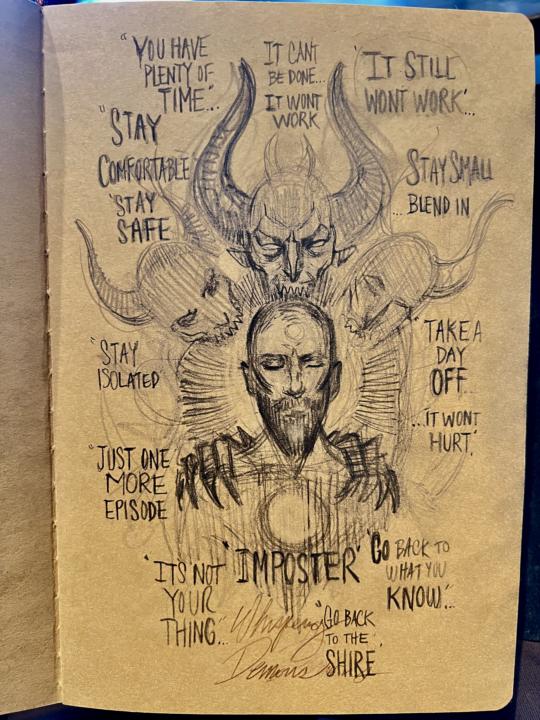 "YOU HAVE
PLENTY OF
TIME"..
IT CANT
BE DONE...
IT WONT
WORK
'IT STILL
WONT WORK'...
"STAY
COMFORTABLE
"STAY
SAFE
STAY SMALL
... BLEND IN
"STAY
ISOLATED
"TAKE A
DAY
OFF...
...IT WONT
HURT."
"JUST ONE
MORE
EPISODE
"IT'S NOT
YOUR
THING"...
"IMPOSTER"
"GO BACK TO
WHAT YOU
KNOW"...
"GO BACK
TO THE
SHIRE"
Whispering
Demons